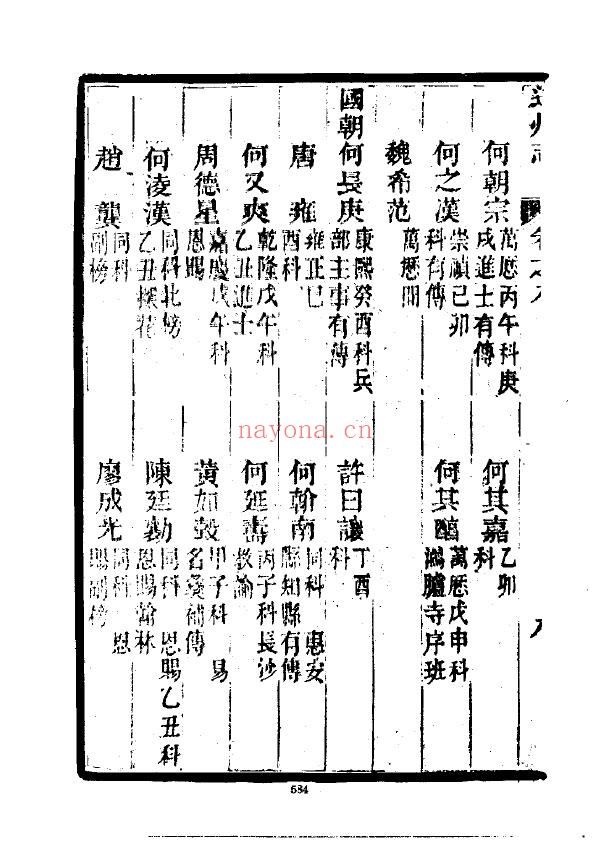 道州志 卷之八 九
何朝宗 萬厯丙午科庚戌進士有傳 何其嘉 乙卯科
何之漢 崇禎己卯科有傳 何其䤈 萬厯戊申科鴻臚寺序班
魏希范 萬厯間
國朝
何長庚 康熙癸酉科兵部主事有傳 許曰讓 丁酉科
唐雍 雍正己酉科 何翰南 同科 惠安縣知縣有傳
何又爽 乾隆戊午科乙丑進士 何延壽 丙子科長沙教諭
周德星 嘉慶戊午科恩賜 黃如穀 甲子科 易名凝補傳
何凌漢 同科北榜乙丑探花 陳廷勷 同科 恩賜乙丑科恩賜翰林
趙龔 同科副榜 廖成光 同科 恩賜副榜
nayona.cn
684